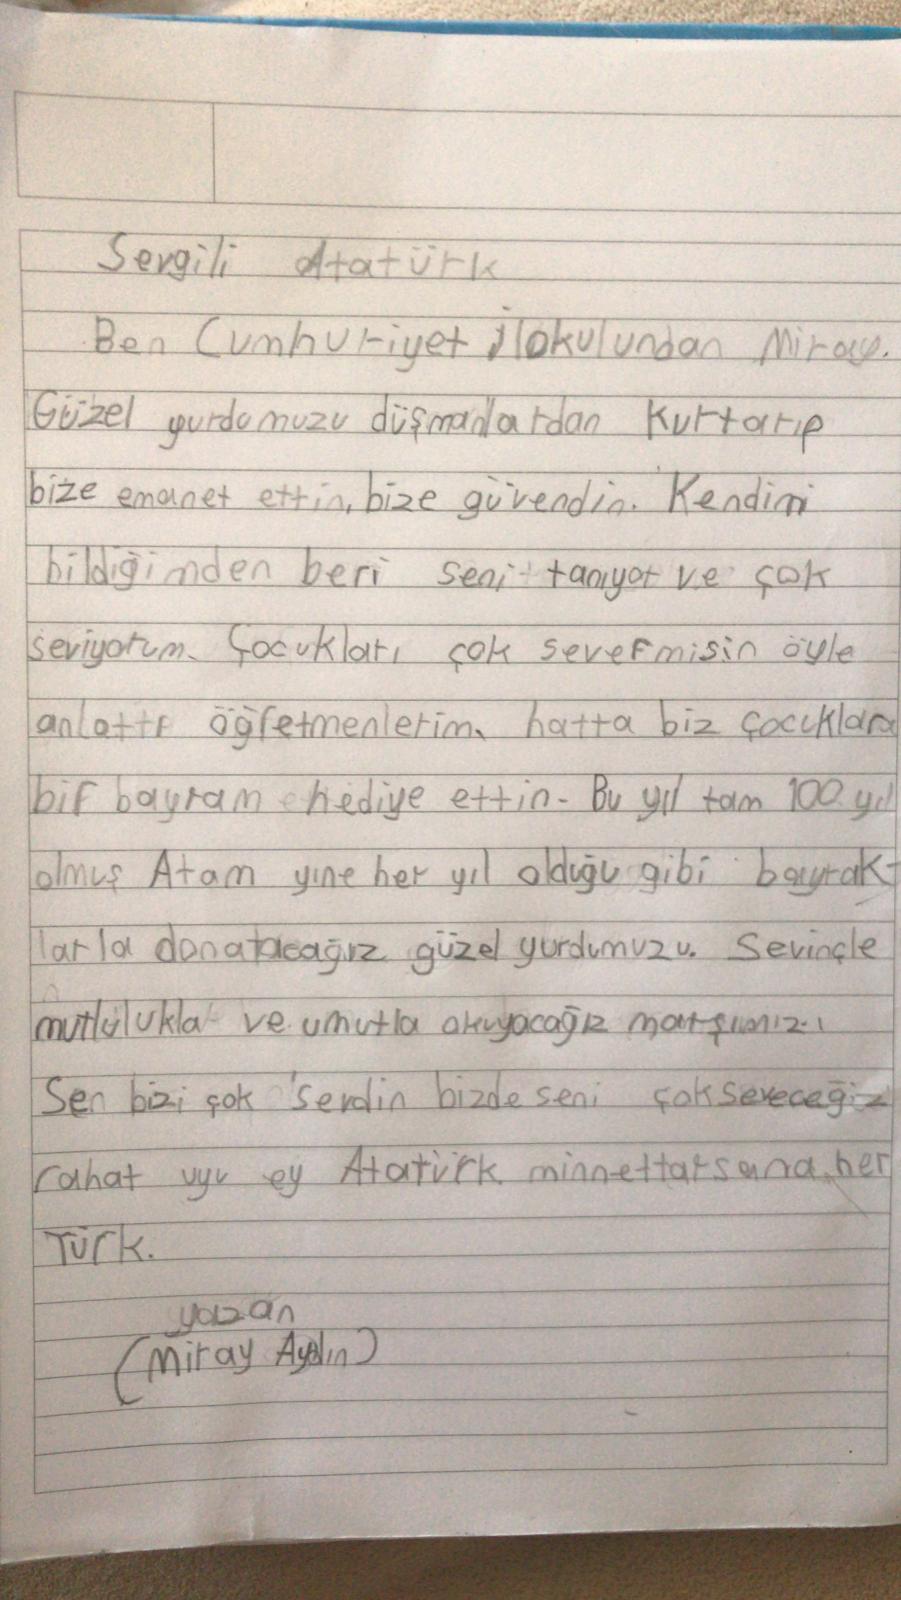 Sevgili Atatürk
Ben Cumhuriyet İlokulundan Miray.
Güzel yurdumuzu düşmanlardan Kurtarıp
bize emanet ettin, bize güvendin. Kendimi
bildiğimden beri seni tanıyor ve çok
seviyorum. Çocukları çok severmisin öyle
anlattı öğretmenlerim, hatta biz çocuklara
bir bayram hediye ettin. Bu yıl tam 100 yıl
olmuş Atam yine her yıl olduğu gibi bayrak-
larla donatacağız güzel yurdumuzu. Sevinçle
mutlulukla ve umutla okuyacağız marşımızı
Sen bizi çok sevdin bizde seni çok seveceğiz
rahat uyu ey Atatürk minnettar sana her
Türk.
yazan
(Miray Aydın)